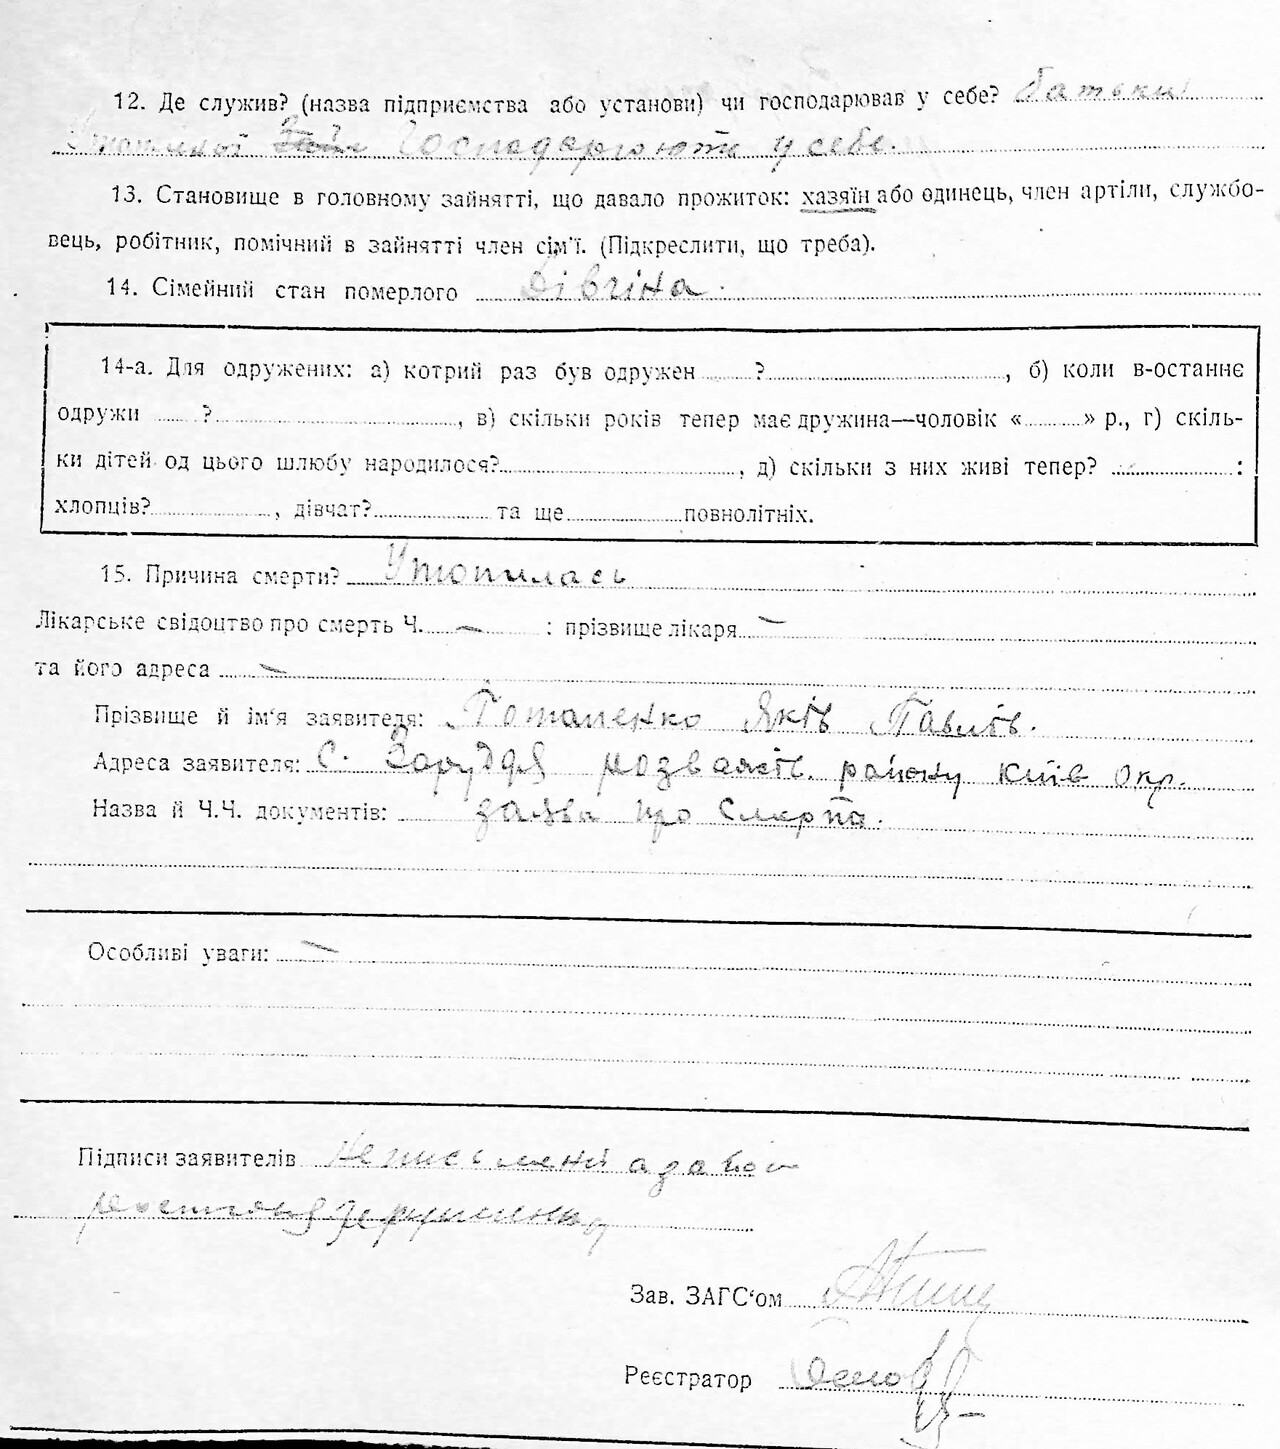 12. Де служив? (назва підприємства або установи) чи господарював у себе? батьки
господарюють у себе.
13. Становище в головному зайнятті, що давало прожиток: хазяїн або одинець, член артіли, службо-
вець, робітник, помічний в зайнятті член сім'ї. (Підкреслити, що треба).
14. Сімейний стан померлого Дівчіна.
14-а. Для одружених: а) котрий раз був одружен ? , б) коли в-останнє
одружи ? , в) скільки років тепер має дружина—чоловік « » р., г) скіль-
ки дітей од цього шлюбу народилося? , д) скільки з них живі тепер? :
хлопців? , дівчат? та ще повнолітніх.
15. Причина смерти? Утопилась
Лікарське свідоцтво про смерть Ч. — : прізвище лікаря —
та його адреса —
Прізвище й ім'я заявителя: Потапенко Яків Павлів.
Адреса заявителя: с. Заруддя розваж́ів. району Київ Окр.
Назва й Ч.Ч. документів: заява про смерть.
Особливі уваги: —
Підписи заявителів неписьмений
Зав. ЗАГС'ом
Реєстратор